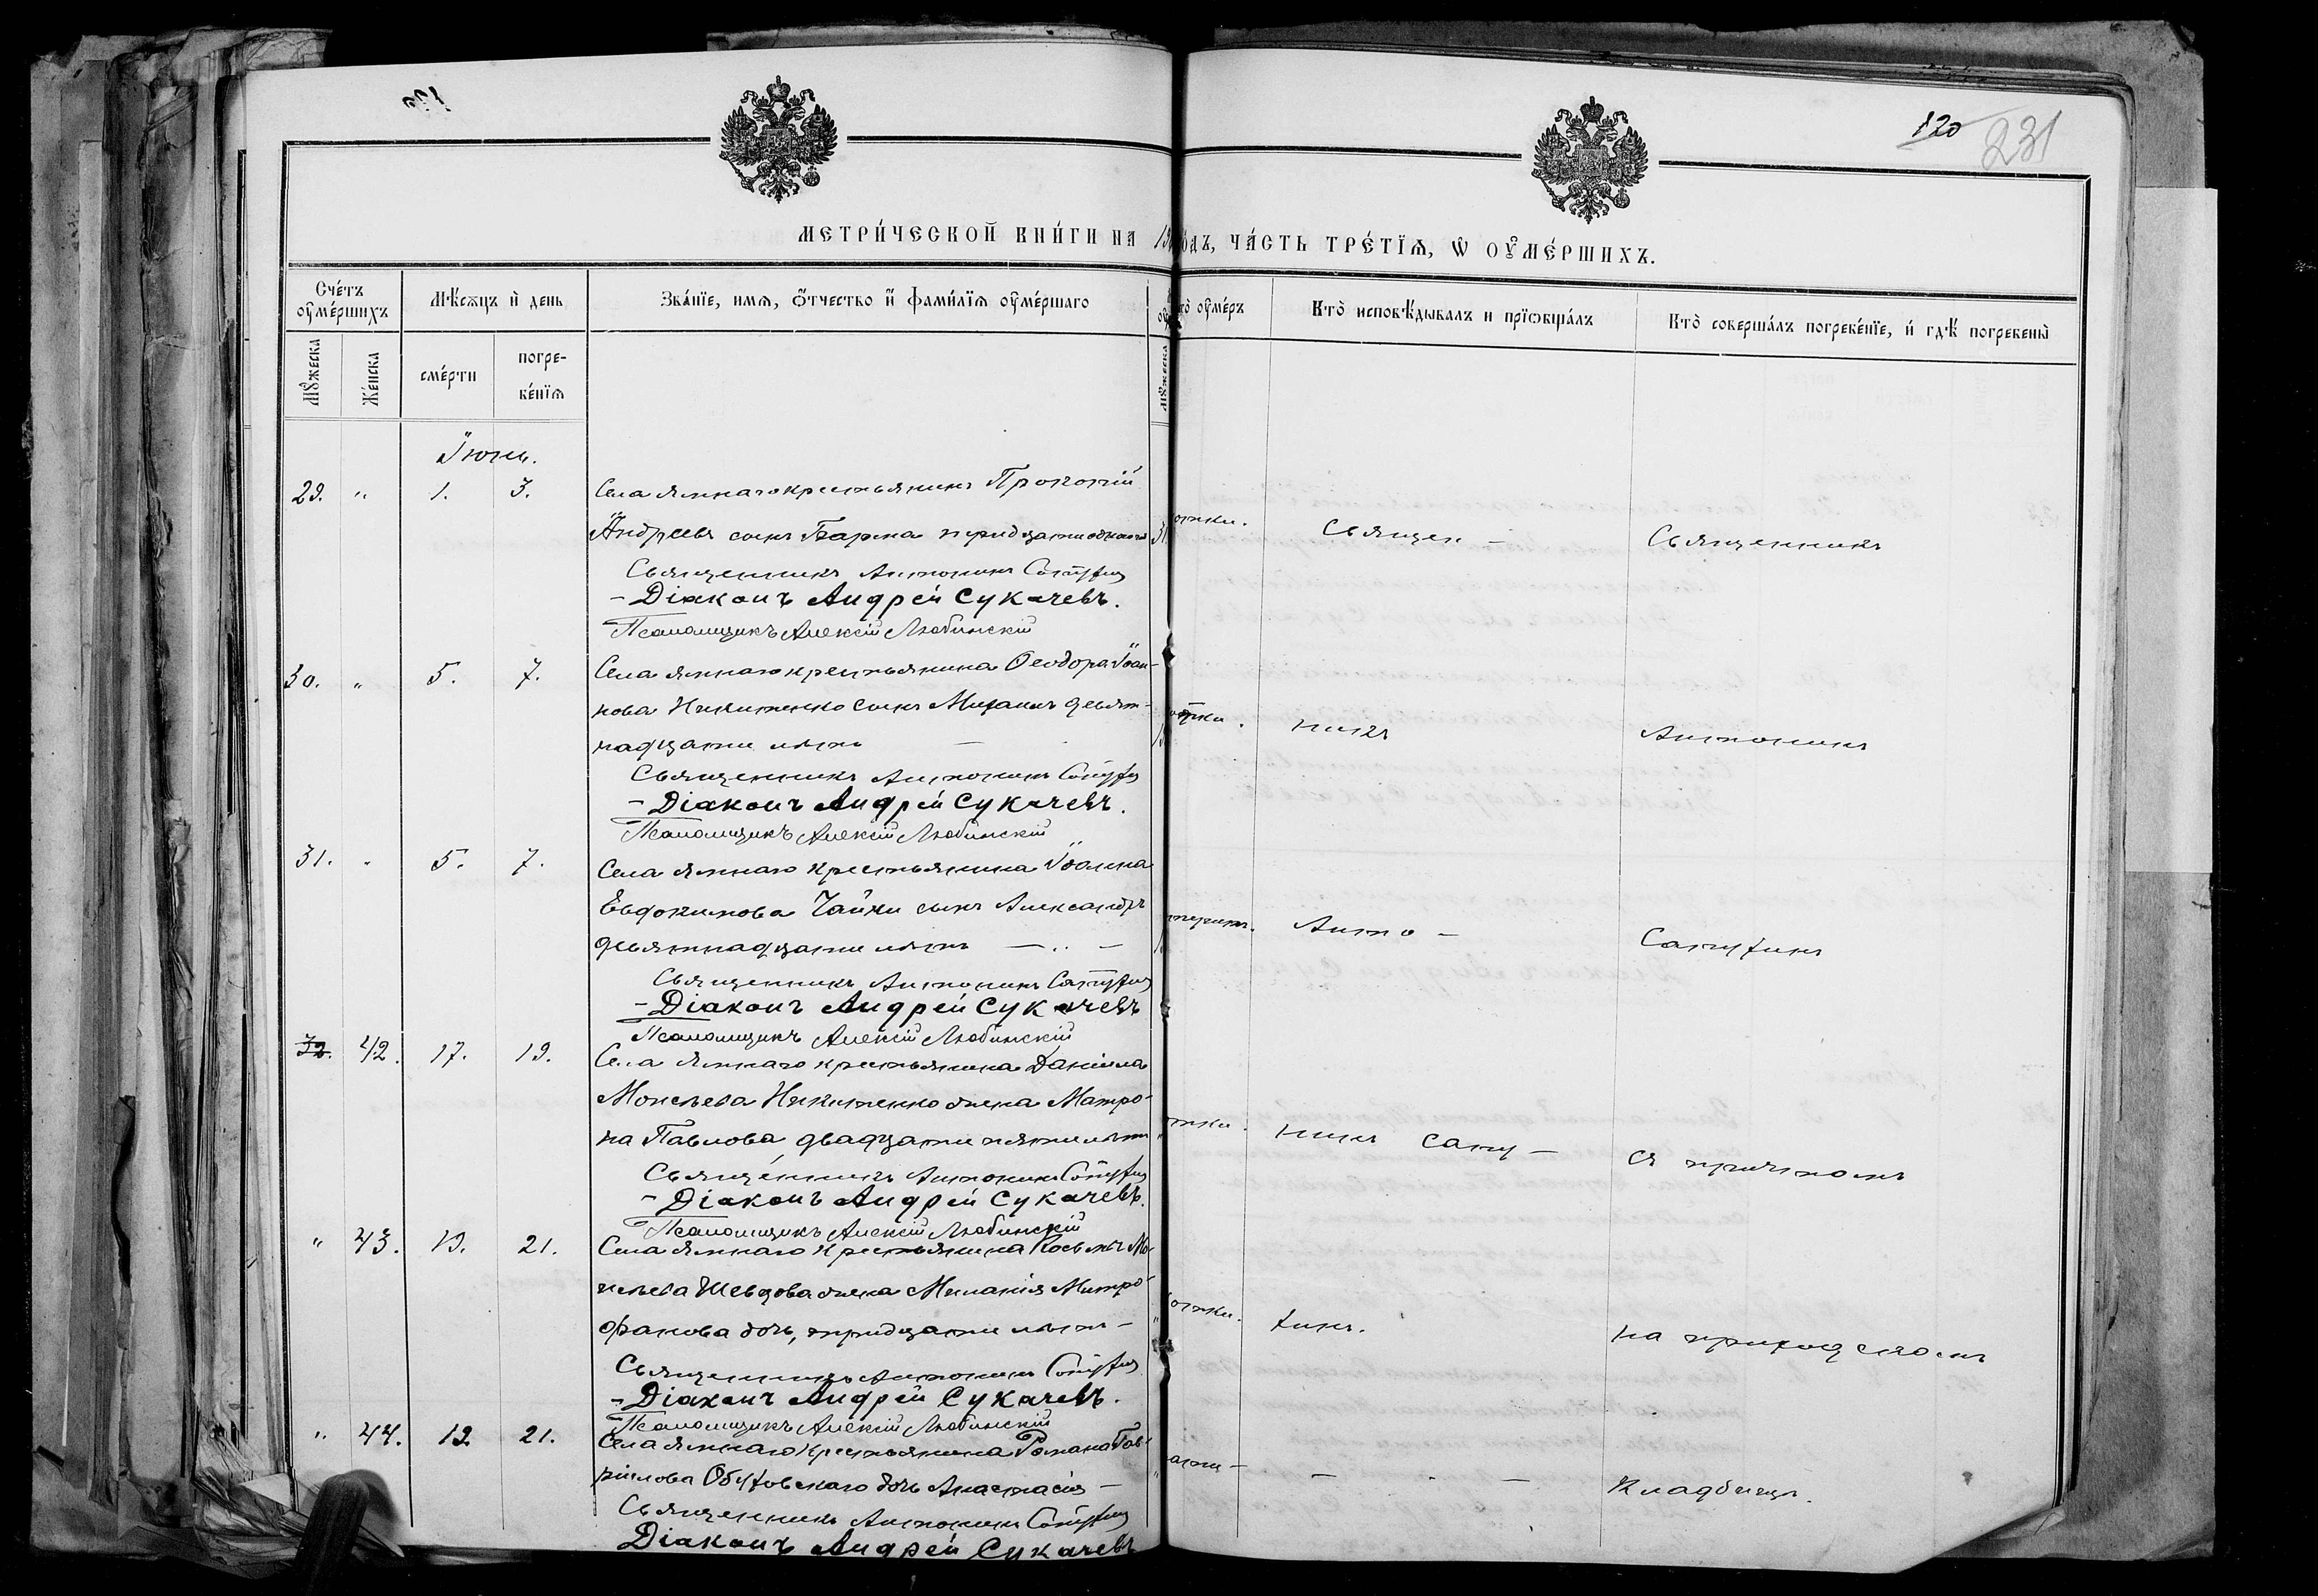 120
231
МЕТРИ́ЧЕСКОЙ КНИ́ГИ НА 19 ГОДЪ, ЧА́СТЬ ТРЕ́ТЇѦ, Ѡ ОУМЕ́РШИХЪ.
Сче́тъ оуме́ршихъ
Мѣ́сѧцъ и҆ день
Зва́нїе, имѧ, ѻ҆тчество и҆ фами́лїѧ оуме́ршаго
оуме́ръ
Кто̀ исповѣ́дывалъ и прїѡбща́лъ
Кто̀ соверша́лъ погребе́нїе, и́ гдѣ̀ погребены̀
Мꙋ́жеска
Же́нска
сме́рти
погре-
бе́нїѧ
Мꙋ́жеска
Іюнь.
29. " 1. 3. Села Ямнаго крестьянинъ Прокопій
Андреевъ сынъ Барма тридцати одного 31
Священникъ Антонинъ
Діаконъ Андрей Сукачевъ.
Псаломщикъ Алексій Любинскій
Священ-
Священникъ
30. " 5. 7. Села Ямнаго крестьянина Ѳеодора Іоан-
нова Никитенко сынъ Михаилъ девят-
надцати лѣтъ
Священникъ Антонинъ
Діаконъ Андрей Сукачевъ.
Псаломщикъ Алексій Любинскій
никъ
Антонинъ
31. " 5. 7. Села Ямнаго крестьянина Іоанна
Евдокимова Чайки сынъ Александръ
девятнадцати лѣтъ
Священникъ Антонинъ
Діаконъ Андрей Сукачевъ
Псаломщикъ Алексій Любинскій
Анто-
32. 42. 17. 19. Села Ямнаго крестьянина Даніила
Моисеева Никитенко жена Матро-
на Павлова двадцати пяти лѣтъ
Священникъ Антонинъ
Діаконъ Андрей Сукачевъ.
Псаломщикъ Алексій Любинскій
нинъ
съ причтомъ
" 43. 19. 21. Села Ямнаго крестьянина Косьмы Мо-
исеева Шевцова жена Меланія Митро-
фанова дочь, тридцати лѣтъ
Священникъ Антонинъ
Діаконъ Андрей Сукачевъ.
Псаломщикъ Алексій Любинскій
на приходскомъ
" 44. 19. 21. Села Ямнаго крестьянина Романа Гав-
риілова Обуховскаго дочь Анастасія
Священникъ Антонинъ
Діаконъ Андрей Сукачевъ
кладбищѣ.